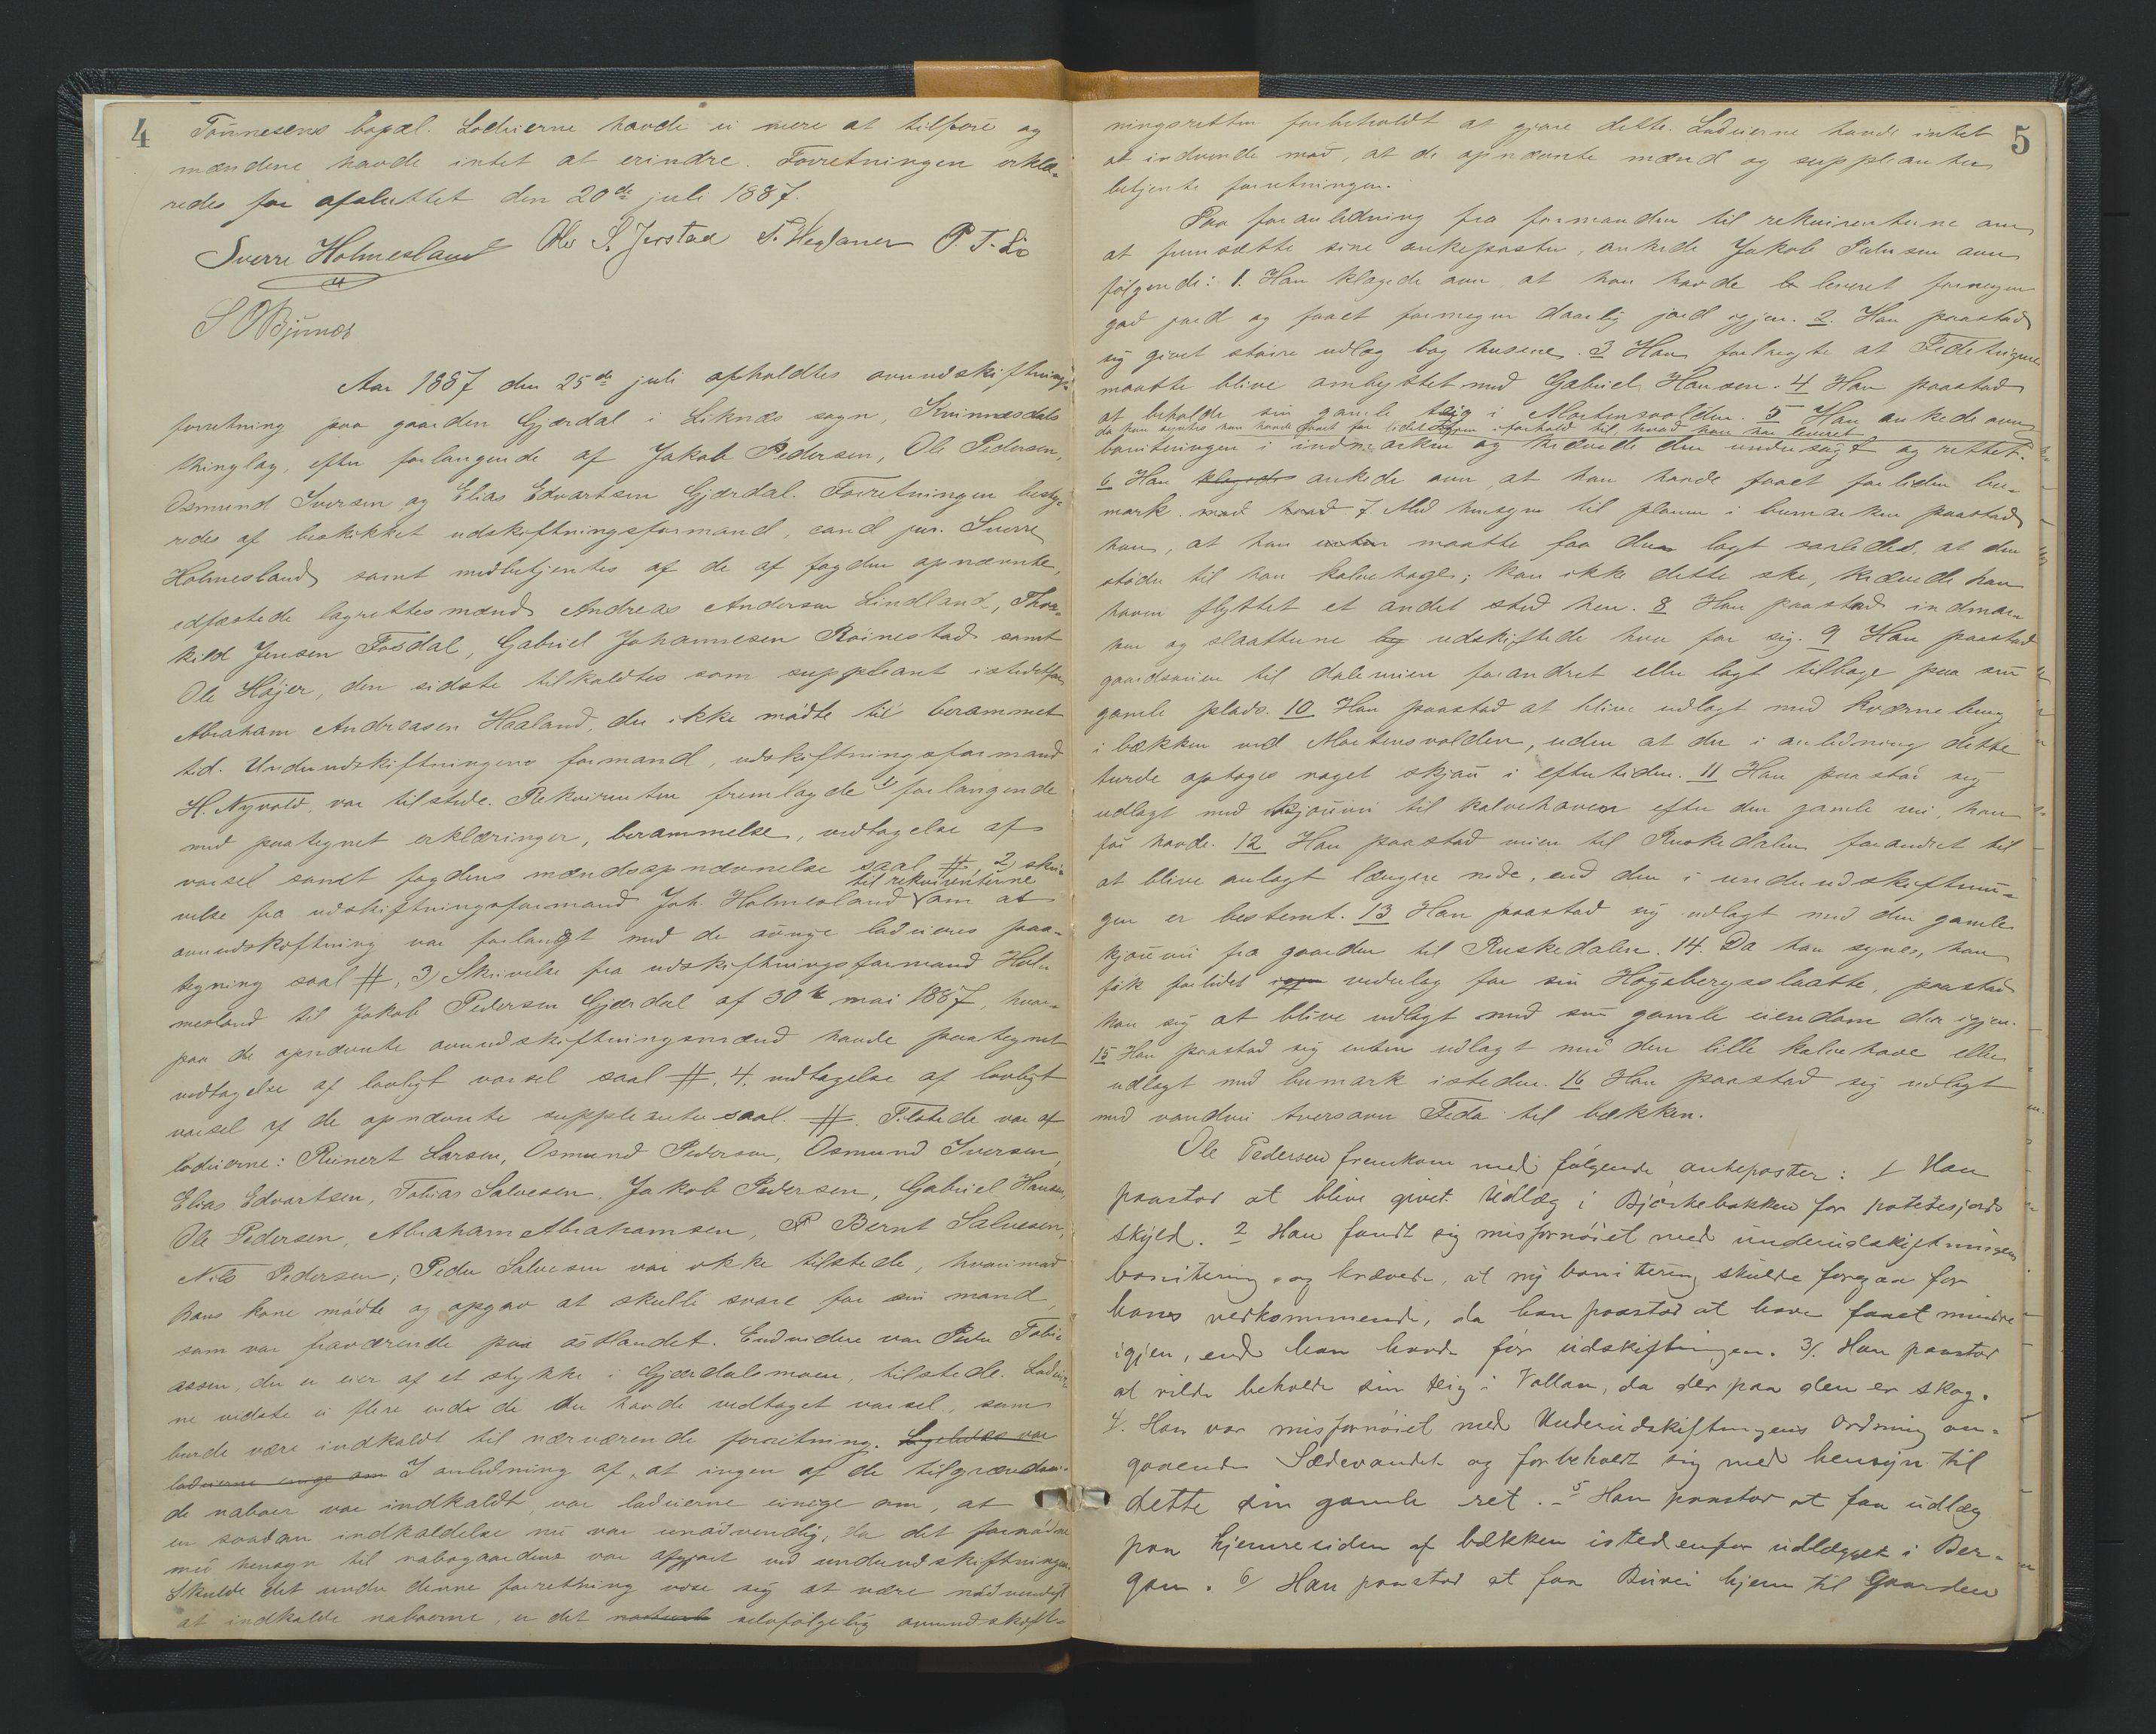 4
Tönnesens bopæl. Lodeierne havde ei mere at tilföre og
mændene havde intet at erindre. Forretningen erklæ-
redes for afsluttet den 20de juli 1887.
Sverre Holmesland Ole S. Jerstad P. T. Li
Aar 1887 den 25de juli afholdtes overudskiftnings-
forretning paa gaarden Gjærdal i Liknæs sogn, Kvinnesdals
thinglag, efter forlangende af Jakob Pedersen, Ole Pedersen,
Osmund Iversen og Elias Edvartsen Gjærdal. Forretningen besty-
redes af beskikket udskiftningsformand, cand jur. Sverre
Holmesland samt medbetjentes af de af fogden opnævnte,
edfæstede lagrettesmænd Andreas Andersen Lindland, Thor-
kild Jensen Fosdal, Gabriel Johannesen Röinestad samt
Ole Höjer, den sidste tilkaldtes som suppleant istedetfor
Abraham Andreasen Haaland, der ikke mödte til berammet
tid. Underudskiftningens formand, udskiftningsformand
H. Nyvold, var tilstede. Rekvirenten fremlagde 1) forlangende
med paategnet erklæringer, berammelse, vedtagelse af
varsel samt fogdens mændsopnævnelse saal. #, 2) skri-
velse fra udskiftningsformand Joh. Holmesland til rekvirenterne om at
overudskiftning var forlangt med de övrige lodeieres paa-
tegning saal #, 3) Skrivelse fra udskiftningsformand Hol-
mesland til Jakob Pedersen Gjærdal af 30te mai 1887, hvor-
paa de opnævnte overudskiftningsmænd havde paategnet
vedtagelse af lovligt varsel saal #, 4, vedtagelse af lovligt
varsel af de opnævnte suppleanter saal. #. Tilstede var af
lodeierne: Reinert Larsen, Osmund Pedersen, Osmund Iversen,
Elias Edvartsen, Tobias Salvesen, Jakob Pedersen, Gabriel Hansen,
Ole Pedersen, Abraham Abrahamsen, Bernt Salvesen,
Nils Pedersen; Peder Salvesen var ikke tilstede, hvorimod
hans kone mödte og opgav at skulle svare for sin mand,
som var fraværende paa östlandet. Endvidere var Peder Tobi-
assen, der er eier af et stykke i Gjærdalsmoen, tilstede. Lodeier-
ne vidste ei flere end de der havde vedtaget varsel, som
burde være indkaldt til nærværende forretning. Ligeledes var
lodeierne enige om I anledning af, at ingen af de tilgrændsen-
de naboer var indkaldt, var lodeierne enige om, at
en saadan indkaldelse nu var unödvendig, da det fornödne
med hensyn til nabogaardene var afgjort ved underudskiftningen.
Skulde det under denne forretning vise sig at være nödvendigt
at indkalde naboerne, er det selvfölgelig overudskift-
5
ningsretten forbeholdt at gjöre dette. Lodeierne havde intet
at indvende mod, at de opnævnte mænd og suppleanten
betjente forretningen.
Paa foranledning fra formanden til rekvirenterne om
at fremsætte sine ankeposter, ankede Jakob Pedersen over
fölgende: 1. Han klagede over at han havde leveret formegen
god jord og faaet formegen daarlig jord igjen. 2. Han paastod
sig givet större udlæg bag husene. 3 Han forlangte at
maatte blive ombyttet med Gabriel Hansen. 4 Han paastod
at beholde sin gamle teig i Mortensvolden. 5 Han ankede over
da han syntes han havde faaet for lidet igjen i forhold til hvad han har leveret
boniteringen i indmarken og krævede den undersögt og rettet.
6 Han klagede ankede over, at han havde faaet forliden bu-
mark. 7. Med hensyn til planen i bumarken paastod
han, at han maatte faa den lagt saaledes, at den
stöder til hans kalvehage; kan ikke dette ske, krævede han
haven flyttet et andet sted hen. 8 Han paastod indmar-
ken og slaatterne udskiftede hver for sig. 9 Han paastod
gaardsveien til dalveien forandret eller lagt tilbage paa sin
gamle plads. 10 Han paastod at blive udlagt med kværnebrug
i bækken ved Mortensvolden, uden at der i anledning dette
turde optages noget skjön i eftertiden. 11 Han paastod sig
udlagt med kjörevei til kalvehaven efter den gamle vei, han
för havde. 12 Han paastod veien til Ruskedalen forandret til
at blive anlagt længere nede, end den i underudskiftnin-
gen er bestemt. 13 Han paastod sig udlagt med den gamle
kjörevei fra gaarden til Ruskedalen. 14. Da han synes, han
fik forlidet igjen vederlag for sin Högsbergsslaatte, paastod
han sig at blive udlagt med sin gamle eiendom der igjen.
15 Han paastod sig enten udlagt med den lille kalvehave eller
udlagt med bumark isteden. 16 Han paastod sig udlagt
med vandvei tversover Feda til bækken.
Ole Pedersen fremkom med fölgende ankeposter: 1/ Han
paastod at blive givet Udlæg i Bjerkebakken for potetesjords
skyld. 2 Han fandt sig misfornöiet med underudskiftningens
bonitering og krævede, at ny bonitering skulde foregaa for
hans vedkommende, da han paastod at have faaet mindre
igjen, end han havde för udskiftningen. 3/. Han paastod
at ville beholde sin teig i Vollan, da der paa den er skog.
4. Han var misfornöiet med Underudskiftningens Ordning an-
gaaende Sædevandet og forbeholdt sig med hensyn til
dette sin gamle ret. - 5 Han paastod at faa udlæg
paa hjemresiden af bækken istedenfor udlægget i Ber-
gan. 6/ Han paastod at faa Buvei hjem til Gaarden